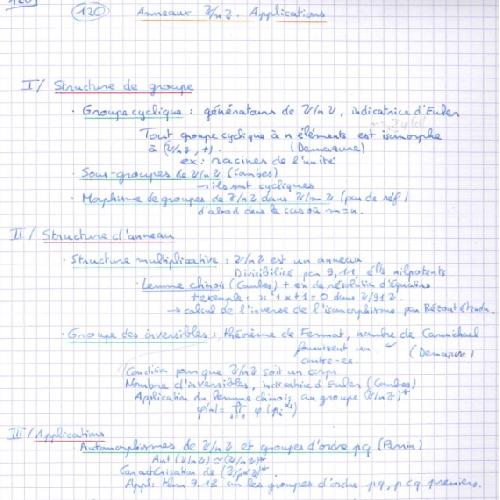 120
(120) Anneaux Z/nZ. Applications
I/ Structure de groupe
• Groupe cyclique : générateurs de Z/nZ, indicatrice d'Euler
Tout groupe cyclique à n éléments est isomorphe
à (Z/nZ, +). (Demazure)
ex : racines de l'unité
• Sous-groupes de Z/nZ (Combes)
→ ils sont cycliques
• Morphismes de groupes de Z/nZ dans Z/mZ (pas de réf)
d'abord dans le cas où m=n.
II/ Structure d'anneau
• Structure multiplicative : Z/nZ est un anneau
Divisibilité par 9, 11, élts nilpotents
• Lemme chinois (Combes) + ex de résolution d'équations
+ exemple : x²+x+1=0 dans Z/91Z
→ calcul de l'inverse de l'isomorphisme par Bézout étendu.
• Groupe des inversibles : théorème de Fermat, nombre de Carmichael
fournissent un (Demazure)
contre-ex.
Condition pour que Z/nZ soit un corps
Nombre d'inversibles, indicatrice d'Euler (Combes)
Application du lemme chinois au groupe (Z/nZ)*
III/ Applications
• Automorphismes de Z/nZ et groupes d'ordre pq (Perrin)
Aut(Z/nZ) ≃ (Z/nZ)*
Caractérisation de (Z/nZ)*
Appli : thm 9.12 sur les groupes d'ordre pq, p<q premiers.